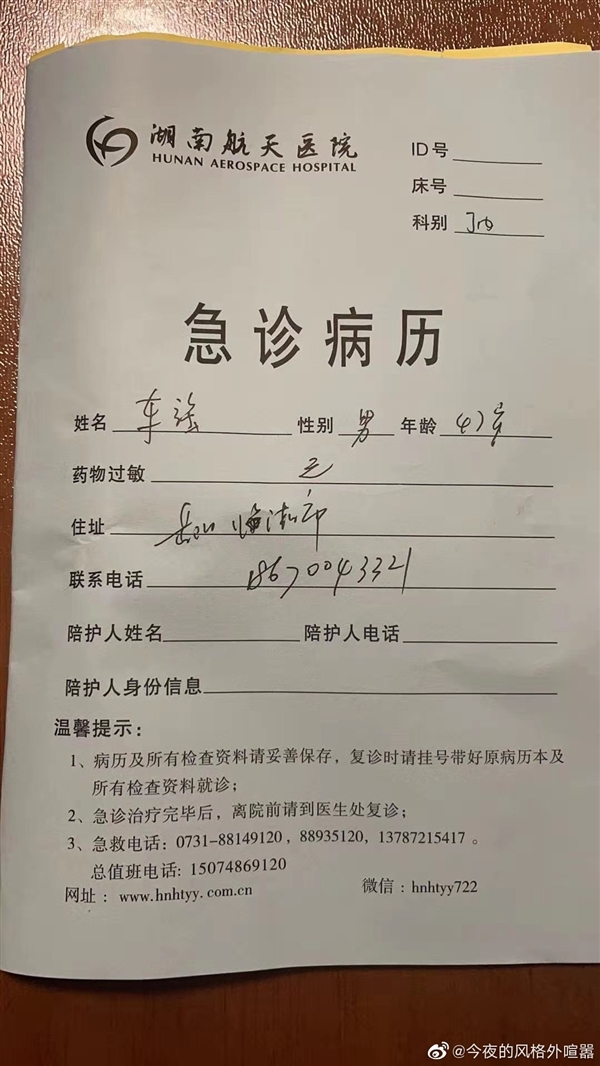 湖南航天医院
HUNAN AEROSPACE HOSPITAL
ID号
床号
科别
急诊病历
姓名 车强 性别 男 年龄 47岁
药物过敏 无
住址 临湘市
联系电话 18670043321
陪护人姓名 陪护人电话
陪护人身份信息
温馨提示：
1、病历及所有检查资料请妥善保存，复诊时请挂号带好原病历本及
所有检查资料就诊；
2、急诊治疗完毕后，离院前请到医生处复诊；
3、急救电话：0731-88149120，88935120，13787215417 。
总值班电话: 15074869120
网址：www.hnhtyy.com.cn 微信：hnhtyy722
@今夜的风格外喧嚣